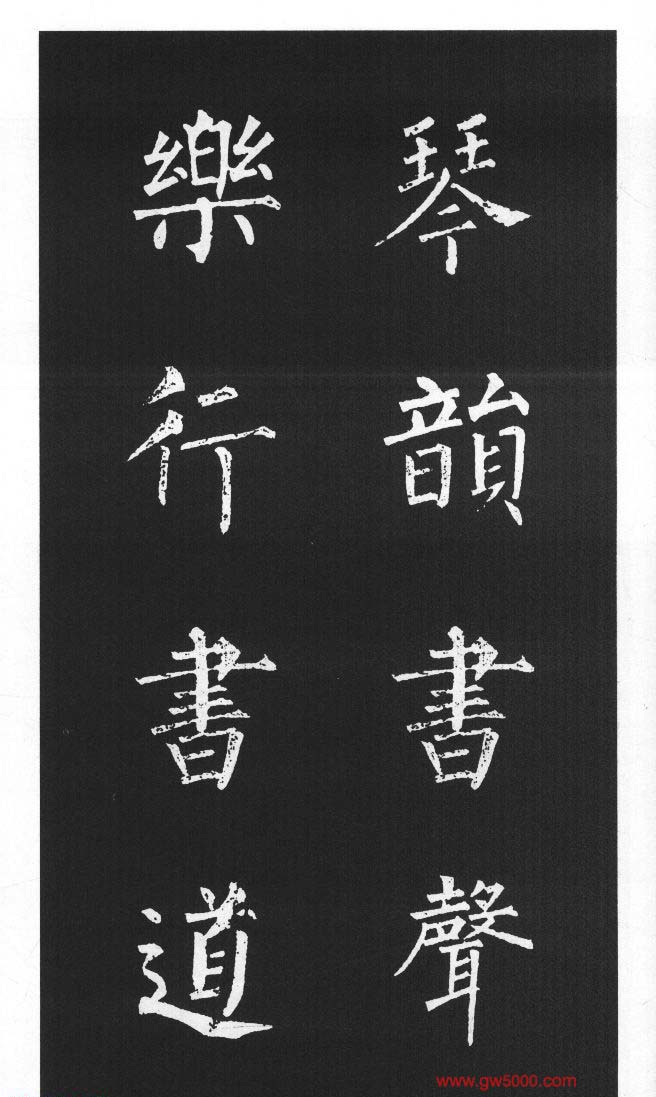 琴韻書聲
樂行書道
www.gw5000.com